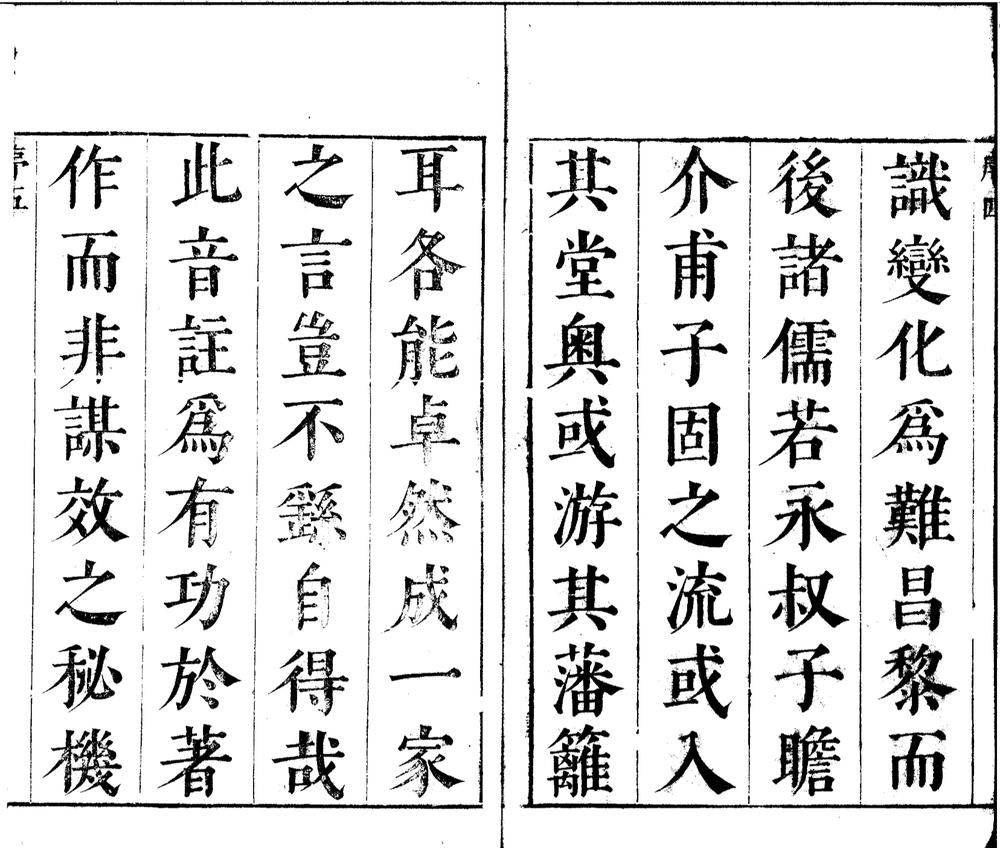 序四
識變化爲難昌黎而
後諸儒若永叔子瞻
介甫子固之流或入
其堂奧或游其藩籬
耳各能卓然成一家
之言豈不繇自得哉
此音註爲有功於著
作而非謀效之秘機
序五